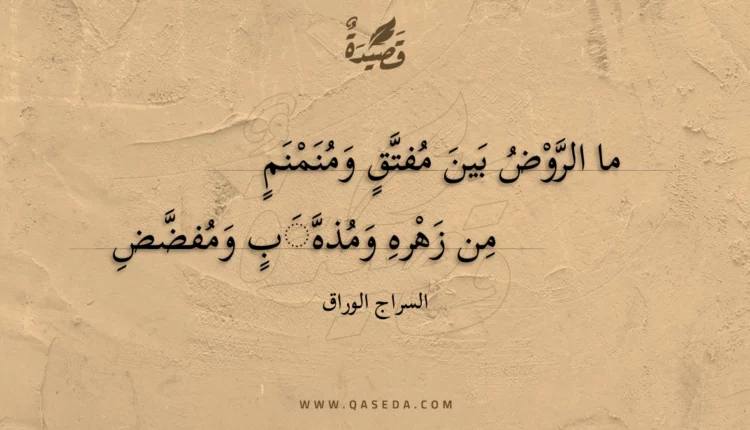 قَصِيدَةٌ
ما الرَّوْضُ بَينَ مُفتَّقٍ وَمُنَمْنَمٍ
مِن زَهْرهِ وَمُذهَّ َبٍ وَمُفضَّضِ
السراج الوراق
WWW.QASEDA.COM